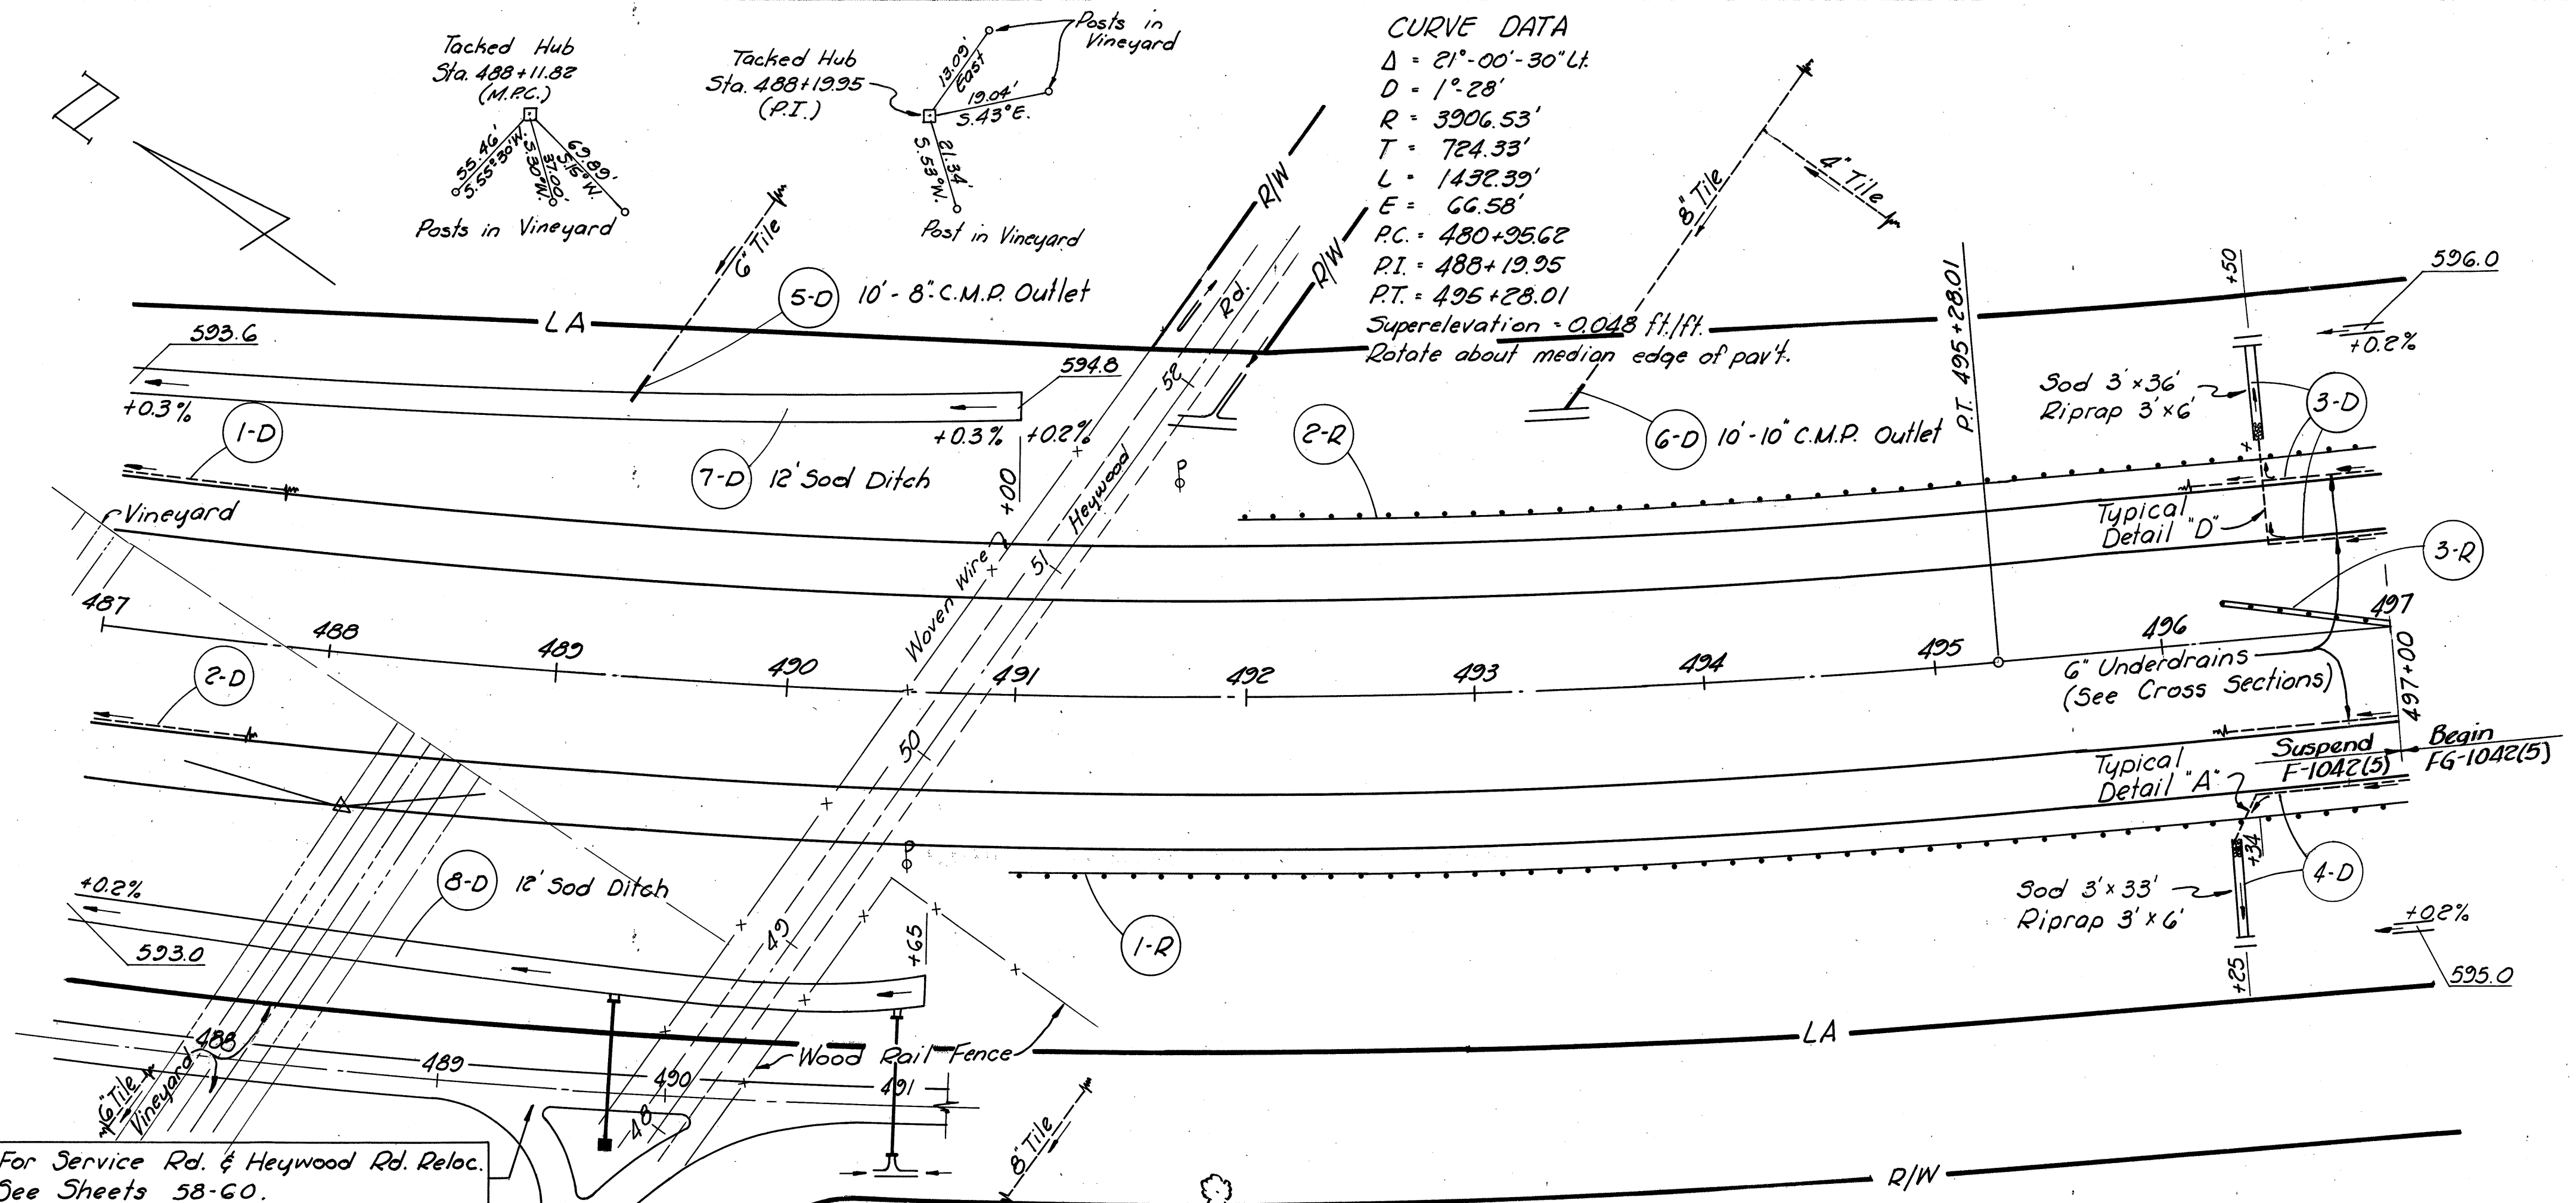 Tacked Hub
Sta. 488+11.82
(M.P.C.)
55.46'
S.55°30'W.
S.30°W.
37.00'
69.89'
S.15°W.
Posts in Vineyard
Tacked Hub
Sta. 488+19.95
(P.I.)
13.09'
East
19.04'
S.43°E.
21.34'
S.53°W.
Posts in
Vineyard
Post in Vineyard
CURVE DATA
Δ = 21°-00'-30" Lt.
D = 1°-28'
R = 3906.53'
T = 724.33'
L = 1432.39'
E = 66.58'
P.C. = 480+95.62
P.I. = 488+19.95
P.T. = 495+28.01
Superelevation = 0.048 ft./ft.
Rotate about median edge of pav't.
6" Tile
5-D 10'-8" C.M.P. Outlet
R/W
R/W
8" Tile
4" Tile
LA
593.6
+0.3%
1-D
7-D 12' Sod Ditch
594.8
+0.3% +0.2%
+00
Rd.
52
Heywood
51
50
49
48
Woven Wire
P
2-R
6-D 10'-10" C.M.P. Outlet
P.T. 495+28.01
+50
596.0
+0.2%
Sod 3'×36'
Riprap 3'×6'
3-D
Typical
Detail "D"
3-R
Vineyard
487
488
489
490
491
492
493
494
495
496
497
497+00
6" Underdrains
(See Cross Sections)
2-D
Typical
Detail "A"
Suspend
F-1042(5)
Begin
FG-1042(5)
+34
4-D
Sod 3'×33'
Riprap 3'×6'
+25
+0.2%
595.0
8-D 12' Sod Ditch
P
+0.2%
593.0
+65
1-R
LA
Wood Rail Fence
488
489
490
491
6" Tile
Vineyard
8" Tile
R/W
For Service Rd. & Heywood Rd. Reloc.
See Sheets 58-60.